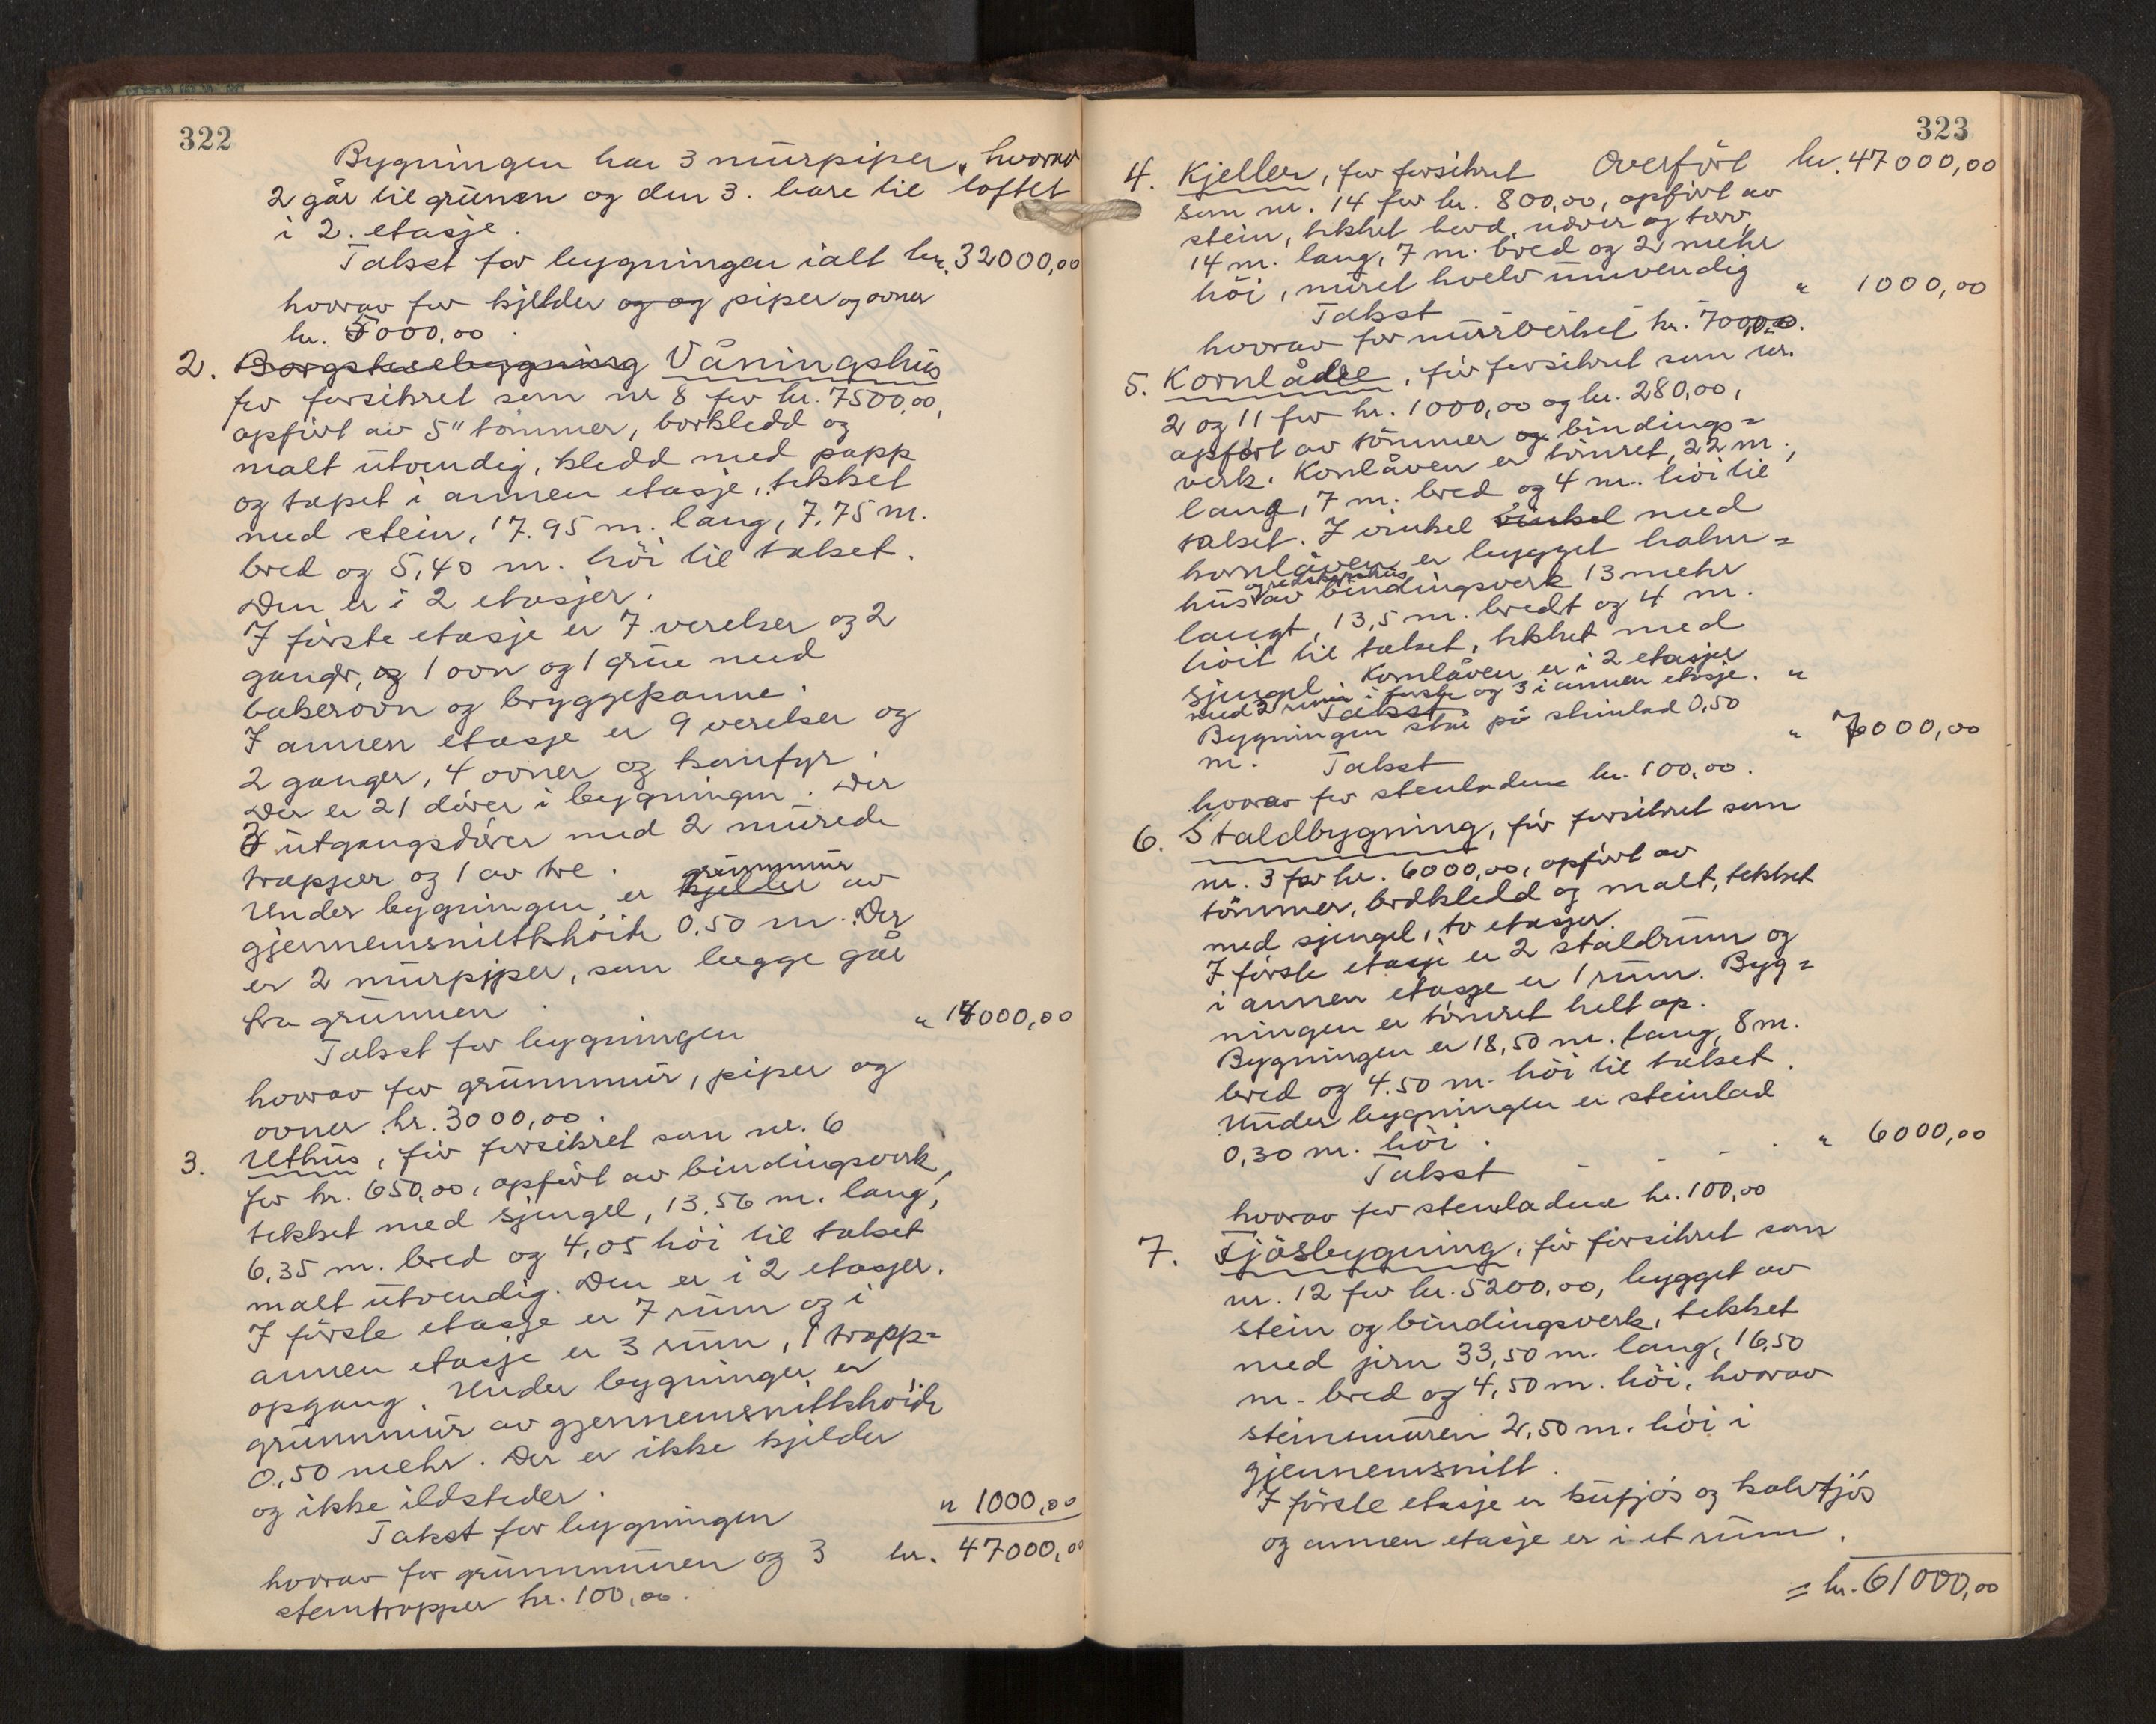 322
Bygningen har 3 murpiper, hvorav
2 går til grunen og den 3. bare til loftet
i 2. etasje.
Takst for bygningen ialt kr. 32000,00
hvorav for kjelder og og piper og ovner
kr. 5000,00.
2. Borgstuebygning Våningshus
før forsikret som nr 8 for kr. 7500,00,
opført av 5" tømmer, borkledd og
malt utvendig, kledd med papp
og tapet i annen etasje, tekket
med stein, 17.95 m. lang, 7.75 m.
bred og 5,40 m. høi til takset.
Den er i 2 etasjer.
I første etasje er 7 verelser og 2
ganger, og 1 ovn og 1 grue med
bakerovn og bryggepanne.
I annen etasje er 9 verelser og
2 ganger, 4 ovner og komfyr.
Der er 21 dører i bygningen. Der
3 utgangsdører med 2 murede
trapper og 1 av tre.
grunnmur
Under bygningen er kjelder av
gjennemsnittshøide 0.50 m. Der
er 2 murpiper, som begge går
fra grunnen.
Takst for bygningen " 14000,00
hvorav for grunnmur, piper og
ovner kr. 3000,00.
3. Uthus, før forsikret som nr. 6
for kr. 650,00, opført av bindingsverk,
tekket med sjengel, 13.56 m. lang,
6.35 m. bred og 4,05 høi til takset
malt utvendig. Den er i 2 etasjer.
I første etasje er 7 rum og i
annen etasje er 3 rum, 1 trapp=
opgang. Under bygningen er
grunnmur av gjennemsnittshøide
0.50 meter. Der er ikke kjelder
og ikke ildsteder.
Takst for bygningen " 1000,00
hvorav for grunnmuren og 3 kr. 47000,00
stentrapper kr. 100,00.
323
Overført kr. 47000,00
4. Kjeller, før forsikret
som nr. 14 for kr. 800,00, opført av
stein, tekket bord, never og torv,
14 m. lang, 7 m. bred og 2 meter
høi, muret hvelv innvendig
Takst " 1000,00
hvorav for murverket kr. 700,00.
5. Kornlåve, før forsikret som nr.
2 og 11 for kr. 1000,00 og kr. 280,00,
opført av tømmer og bindings=
verk. Kornlåven er tømret, 22 m.,
lang, 7 m. bred og 4 m. høi til
takset. I vinkel vinkel med
kornlåven er bygget halm=
og redskapshus
hus av bindingsverk 13 meter
langt, 13,5 m. bredt og 4 m.
høit til takset, tekket med
sjengel. Kornlåven er i 2 etasjer
med 2 rum i første og 3 i annen etasje.
Takst "
Bygningen står på steinlad 0,50
m. Takst " 6000,00
hvorav for stenladene kr. 100,00.
6. Staldbygning, før forsikret som
nr. 3 for kr. 6000,00, opført av
tømmer, bordkledd og malt, tekket
med sjengel, to etasjer.
I første etasje er 2 staldrum og
i annen etasje er 1 rum. Byg=
ningen er tømret helt op.
Bygningen er 18,50 m. lang, 8 m.
bred og 4.50 m. høi til takset.
Under bygningen er steinlad
0,30 m. høi.
Takst - - - . " 6000,00
hvorav for stenladene kr. 100,00
7. Fjøsbygning, før forsikret som
nr. 12 for kr. 5200,00, bygget av
stein og bindingsverk, tekket
med jern 33,50 m. lang, 16,50
m. bred og 4,50 m. høi, hvorav
steinmuren 2,50 m. høi i
gjennemsnitt.
I første etasje er kufjøs og kalvfjøs
og annen etasje er i et rum.
= kr. 61000,00